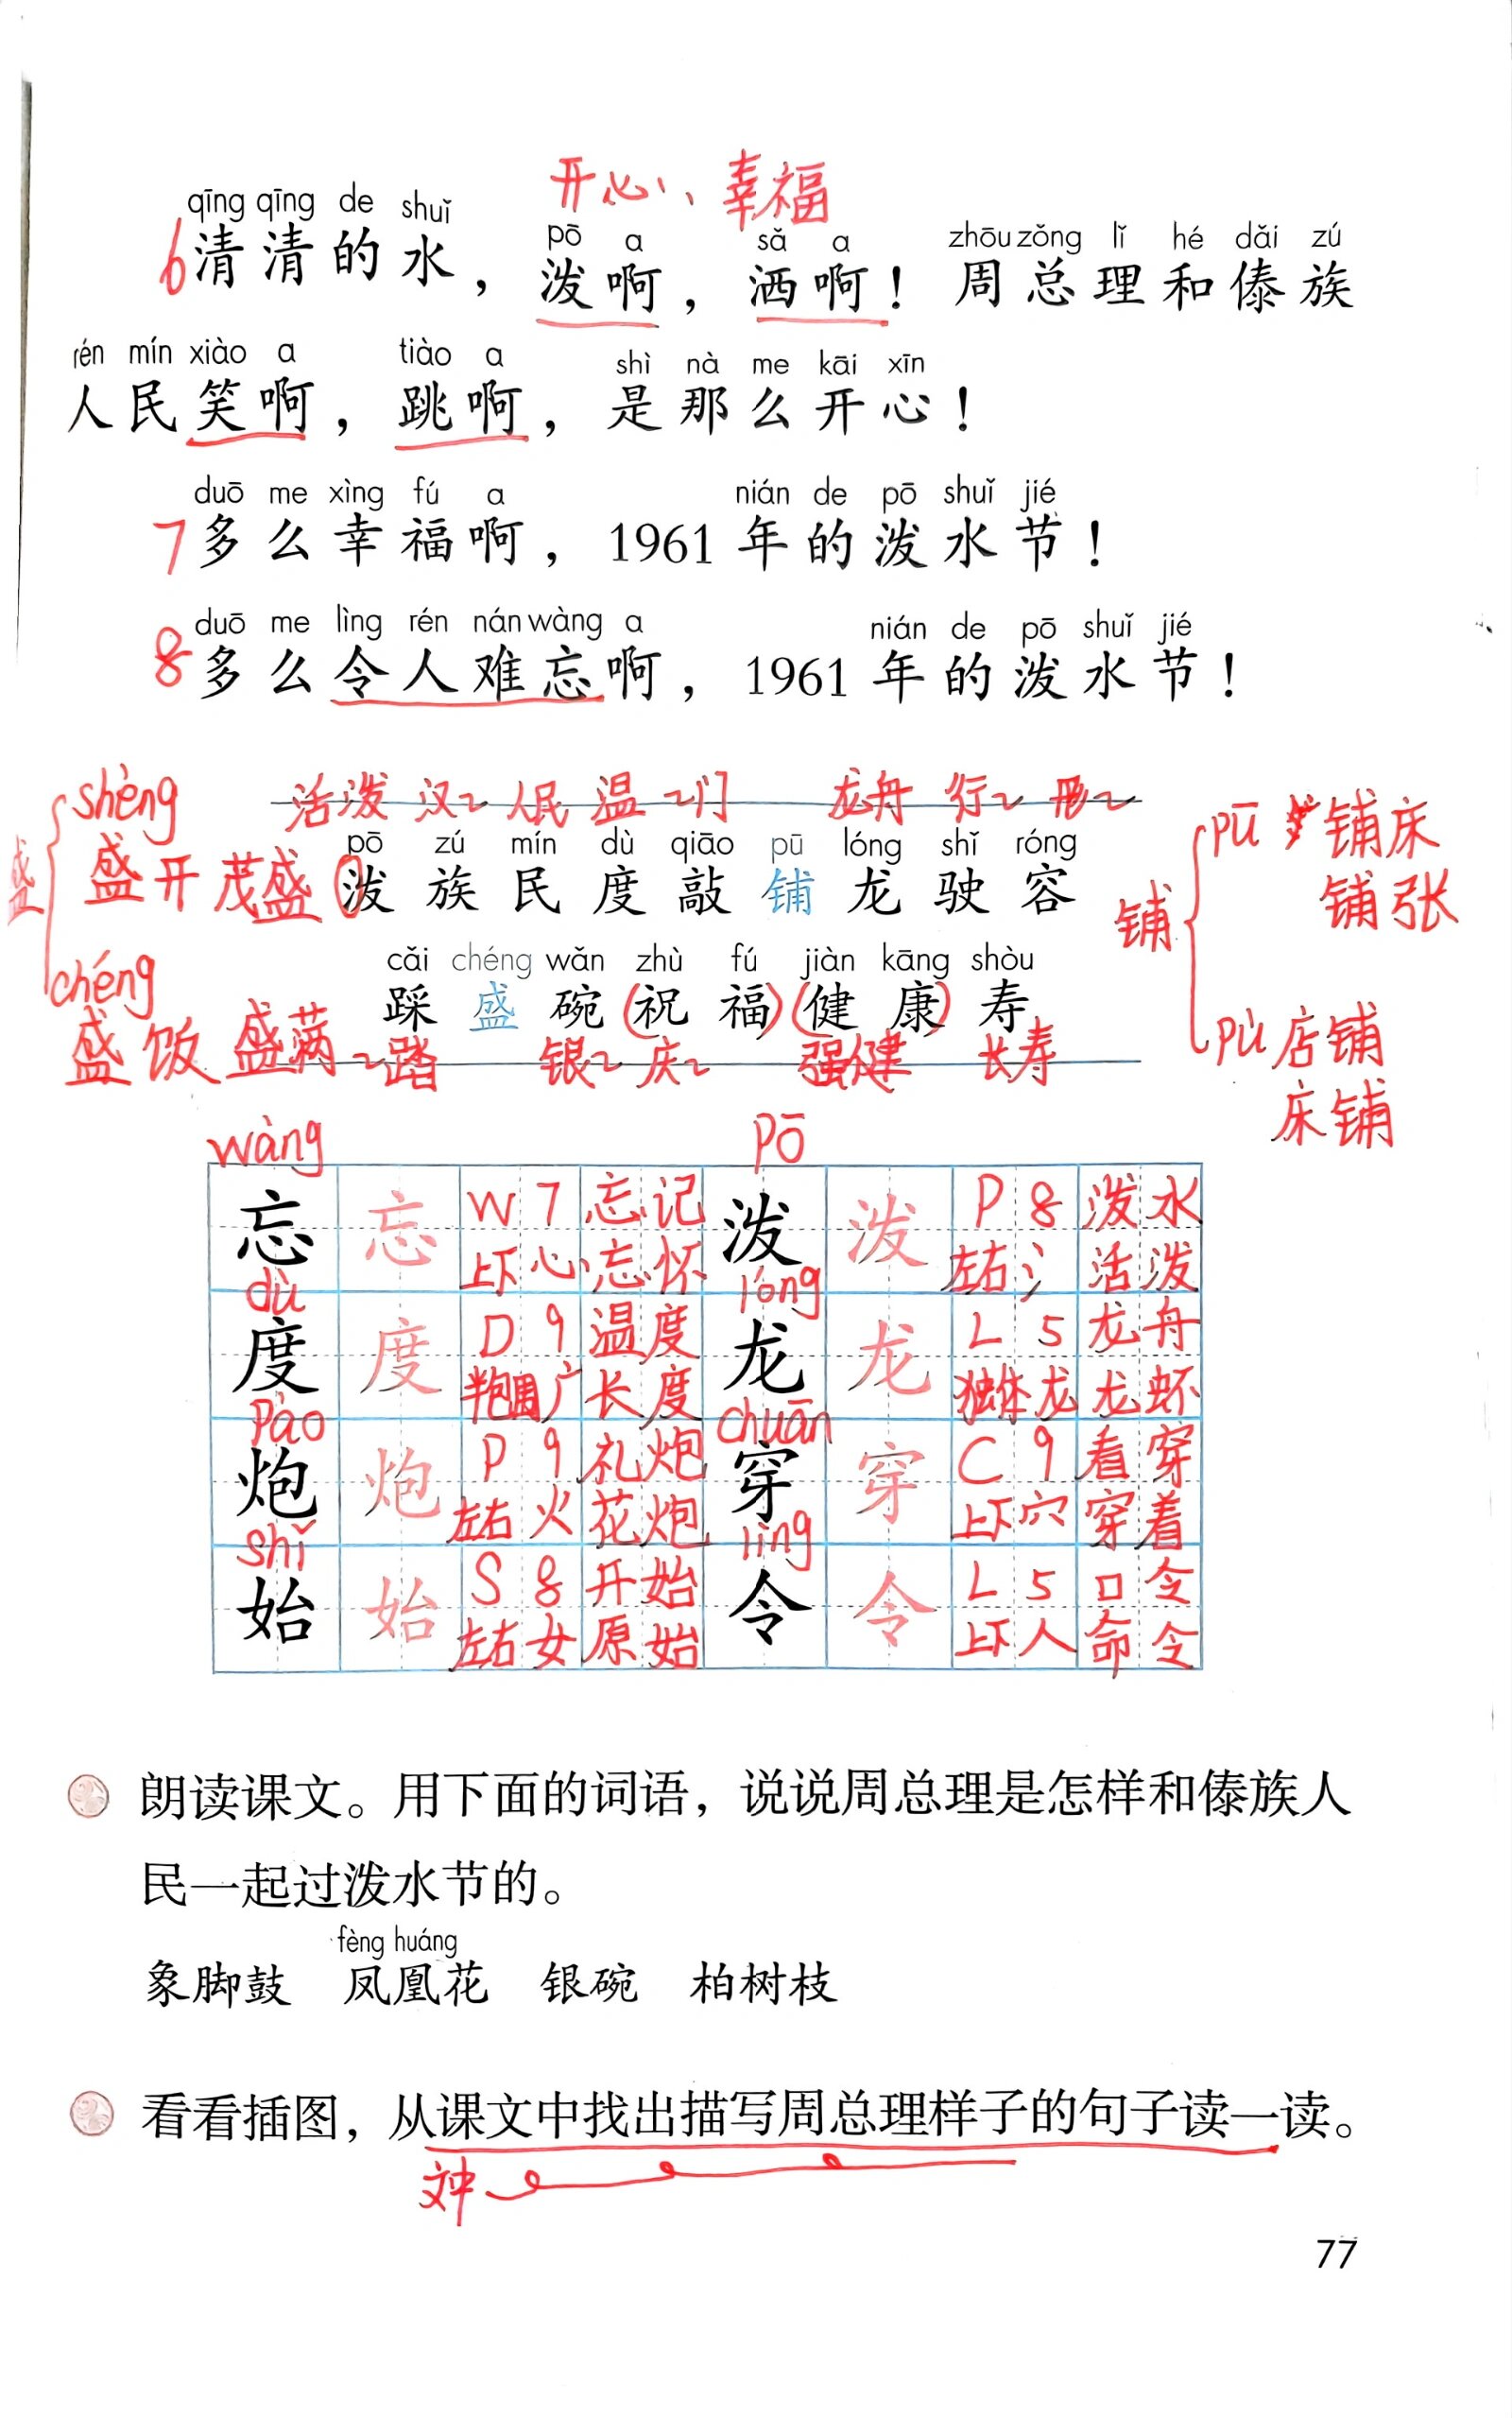 开心、幸福
qīng qīng de shuǐ pō a sǎ a zhōu zǒng lǐ hé dǎi zú
6 清清的水，泼啊，洒啊！周总理和傣族
rén mín xiào a tiào a shì nà me kāi xīn
人民笑啊，跳啊，是那么开心！
duō me xìng fú a nián de pō shuǐ jié
7 多么幸福啊，1961年的泼水节！
duō me lìng rén nán wàng a nián de pō shuǐ jié
8 多么令人难忘啊，1961年的泼水节！
活泼 汉~ 人民 温~ ~门 龙舟 行~ 形~
pō zú mín dù qiāo pū lóng shǐ róng
泼 族 民 度 敲 铺 龙 驶 容
cǎi chéng wǎn zhù fú jiàn kāng shòu
踩 盛 碗 (祝 福) (健 康) 寿
~踏 银~ 庆~ 强健 长寿
盛
shèng
盛开 茂盛
chéng
盛饭 盛满
铺
pū 铺床
铺张
pù 店铺
床铺
wàng pō
忘 忘 W 7 忘记 泼 泼 P 8 泼水
上下 心 忘怀 左右 氵 活泼
dù lóng
度 度 D 9 温度 龙 龙 L 5 龙舟
半包围 广 长度 独体 龙 龙虾
pào chuān
炮 炮 P 9 礼炮 穿 穿 C 9 看穿
左右 火 花炮 上下 穴 穿着
shǐ lìng
始 始 S 8 开始 令 令 L 5 口令
左右 女 原始 上下 人 命令
朗读课文。用下面的词语，说说周总理是怎样和傣族人
民一起过泼水节的。
fèng huáng
象脚鼓 凤凰花 银碗 柏树枝
看看插图，从课文中找出描写周总理样子的句子读一读。
文中
77